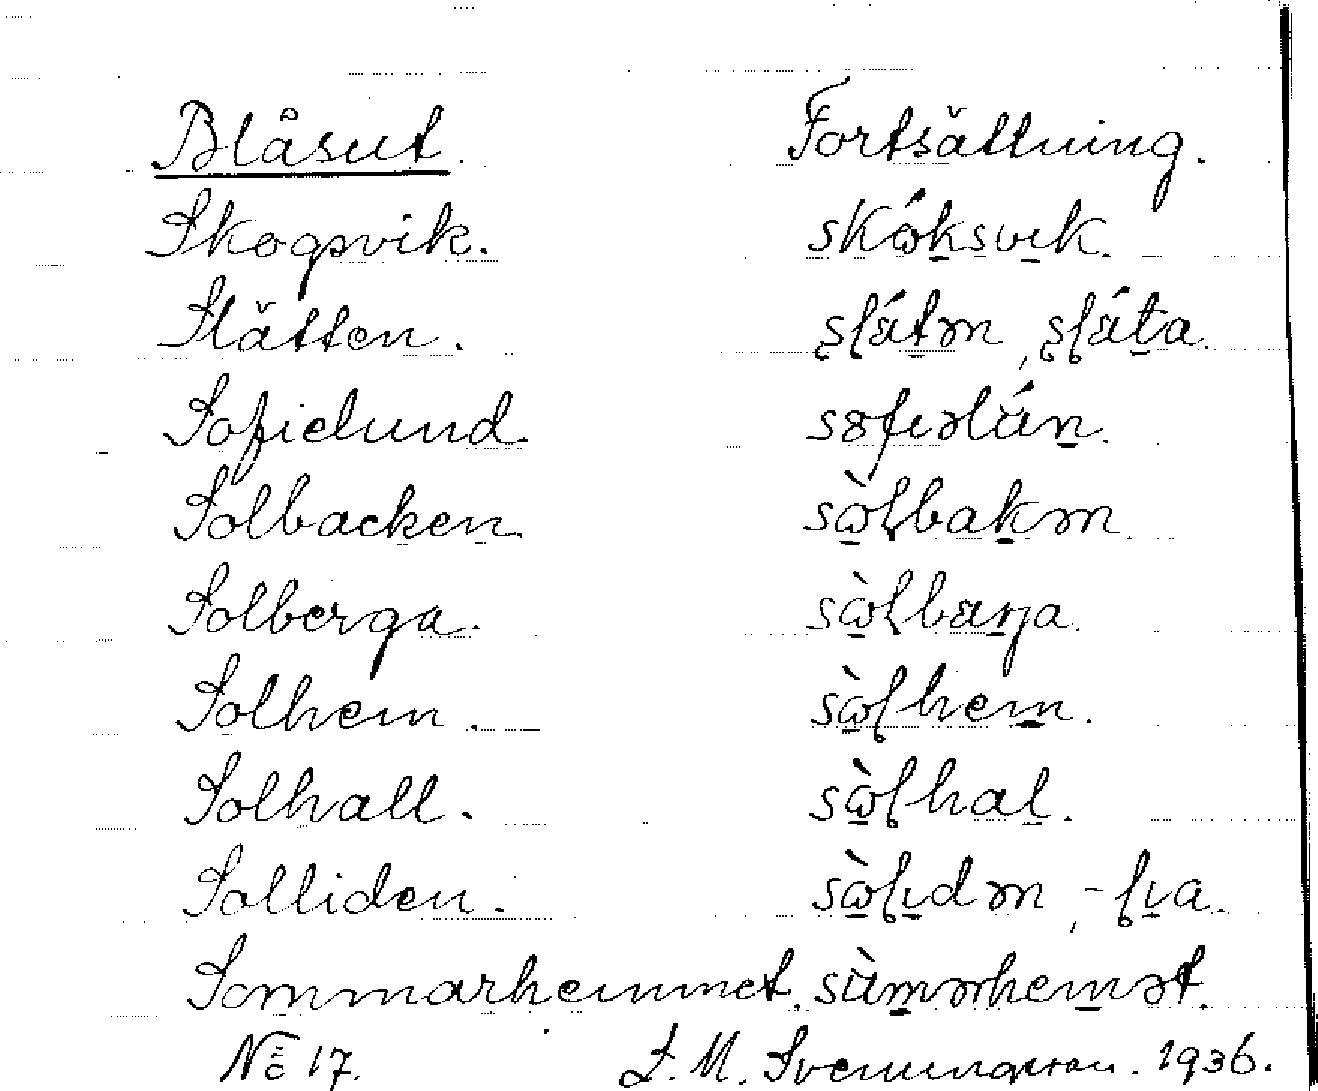 Blåsut. Fortsättning.
Skogsvik. skɷ́ksvɩk.
Slätten. ʂɭǽtən, ʂɭǽta.
Sofielund. sofɩəlún.
Solbacken. sɷ̀ɭbakən.
Solberga. sɷ̀ɭbærja.
Solhem. sɷ̀ɭhem.
Solhall. sɷ̀ɭhal.
Solliden. sɷ̀ɭɩdən, -ɭɩa.
Sommarhemmet. sùmərhemət.
No 17. J. M. Svenungsson. 1936.